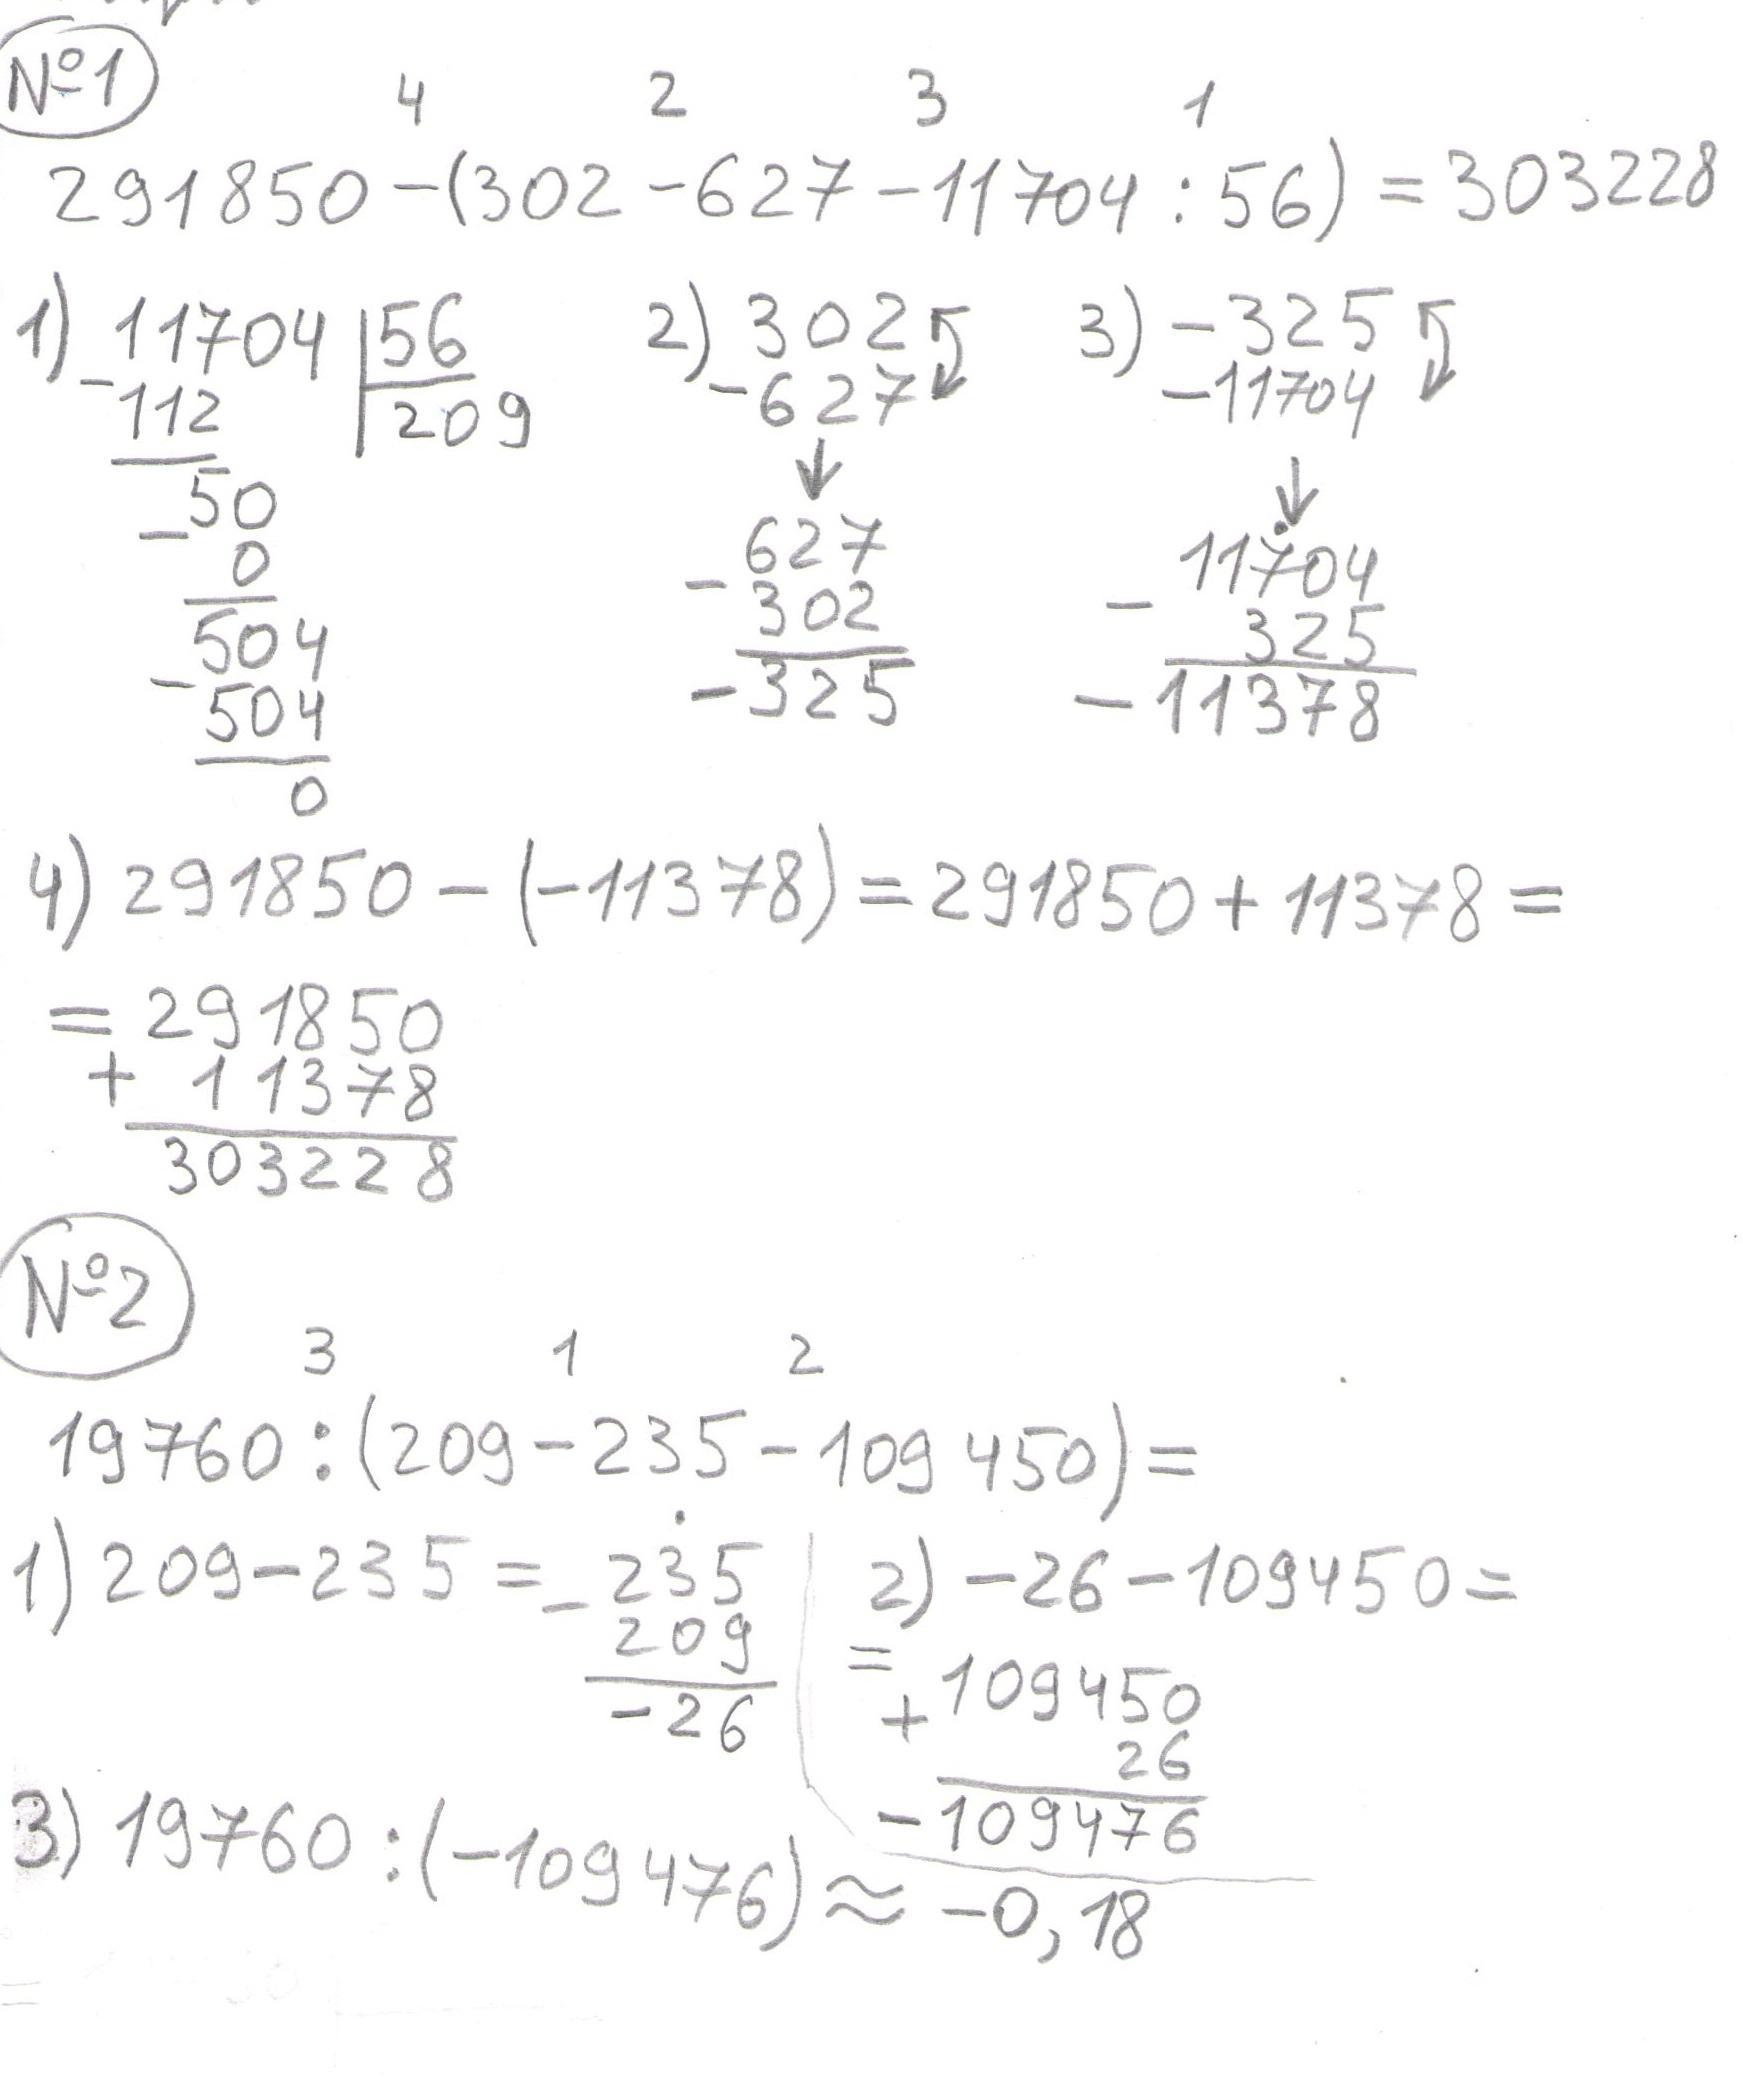 №1
4 2 3 1
291850-(302-627-11704:56)=303228
1) 11704 56 2) 302 3) -325
-112 209 -627 -11704
50
- 0 627 11704
504 - 302 - 325
-504 -325 -11378
0
4) 291850-(-11378)=291850+11378=
=291850
+ 11378
303228
№2
3 1 2
19760:(209-235-109450)=
1) 209-235= - 235 2) -26-109450=
209 = + 109450
-26 26
-109476
3) 19760:(-109476)≈-0,18